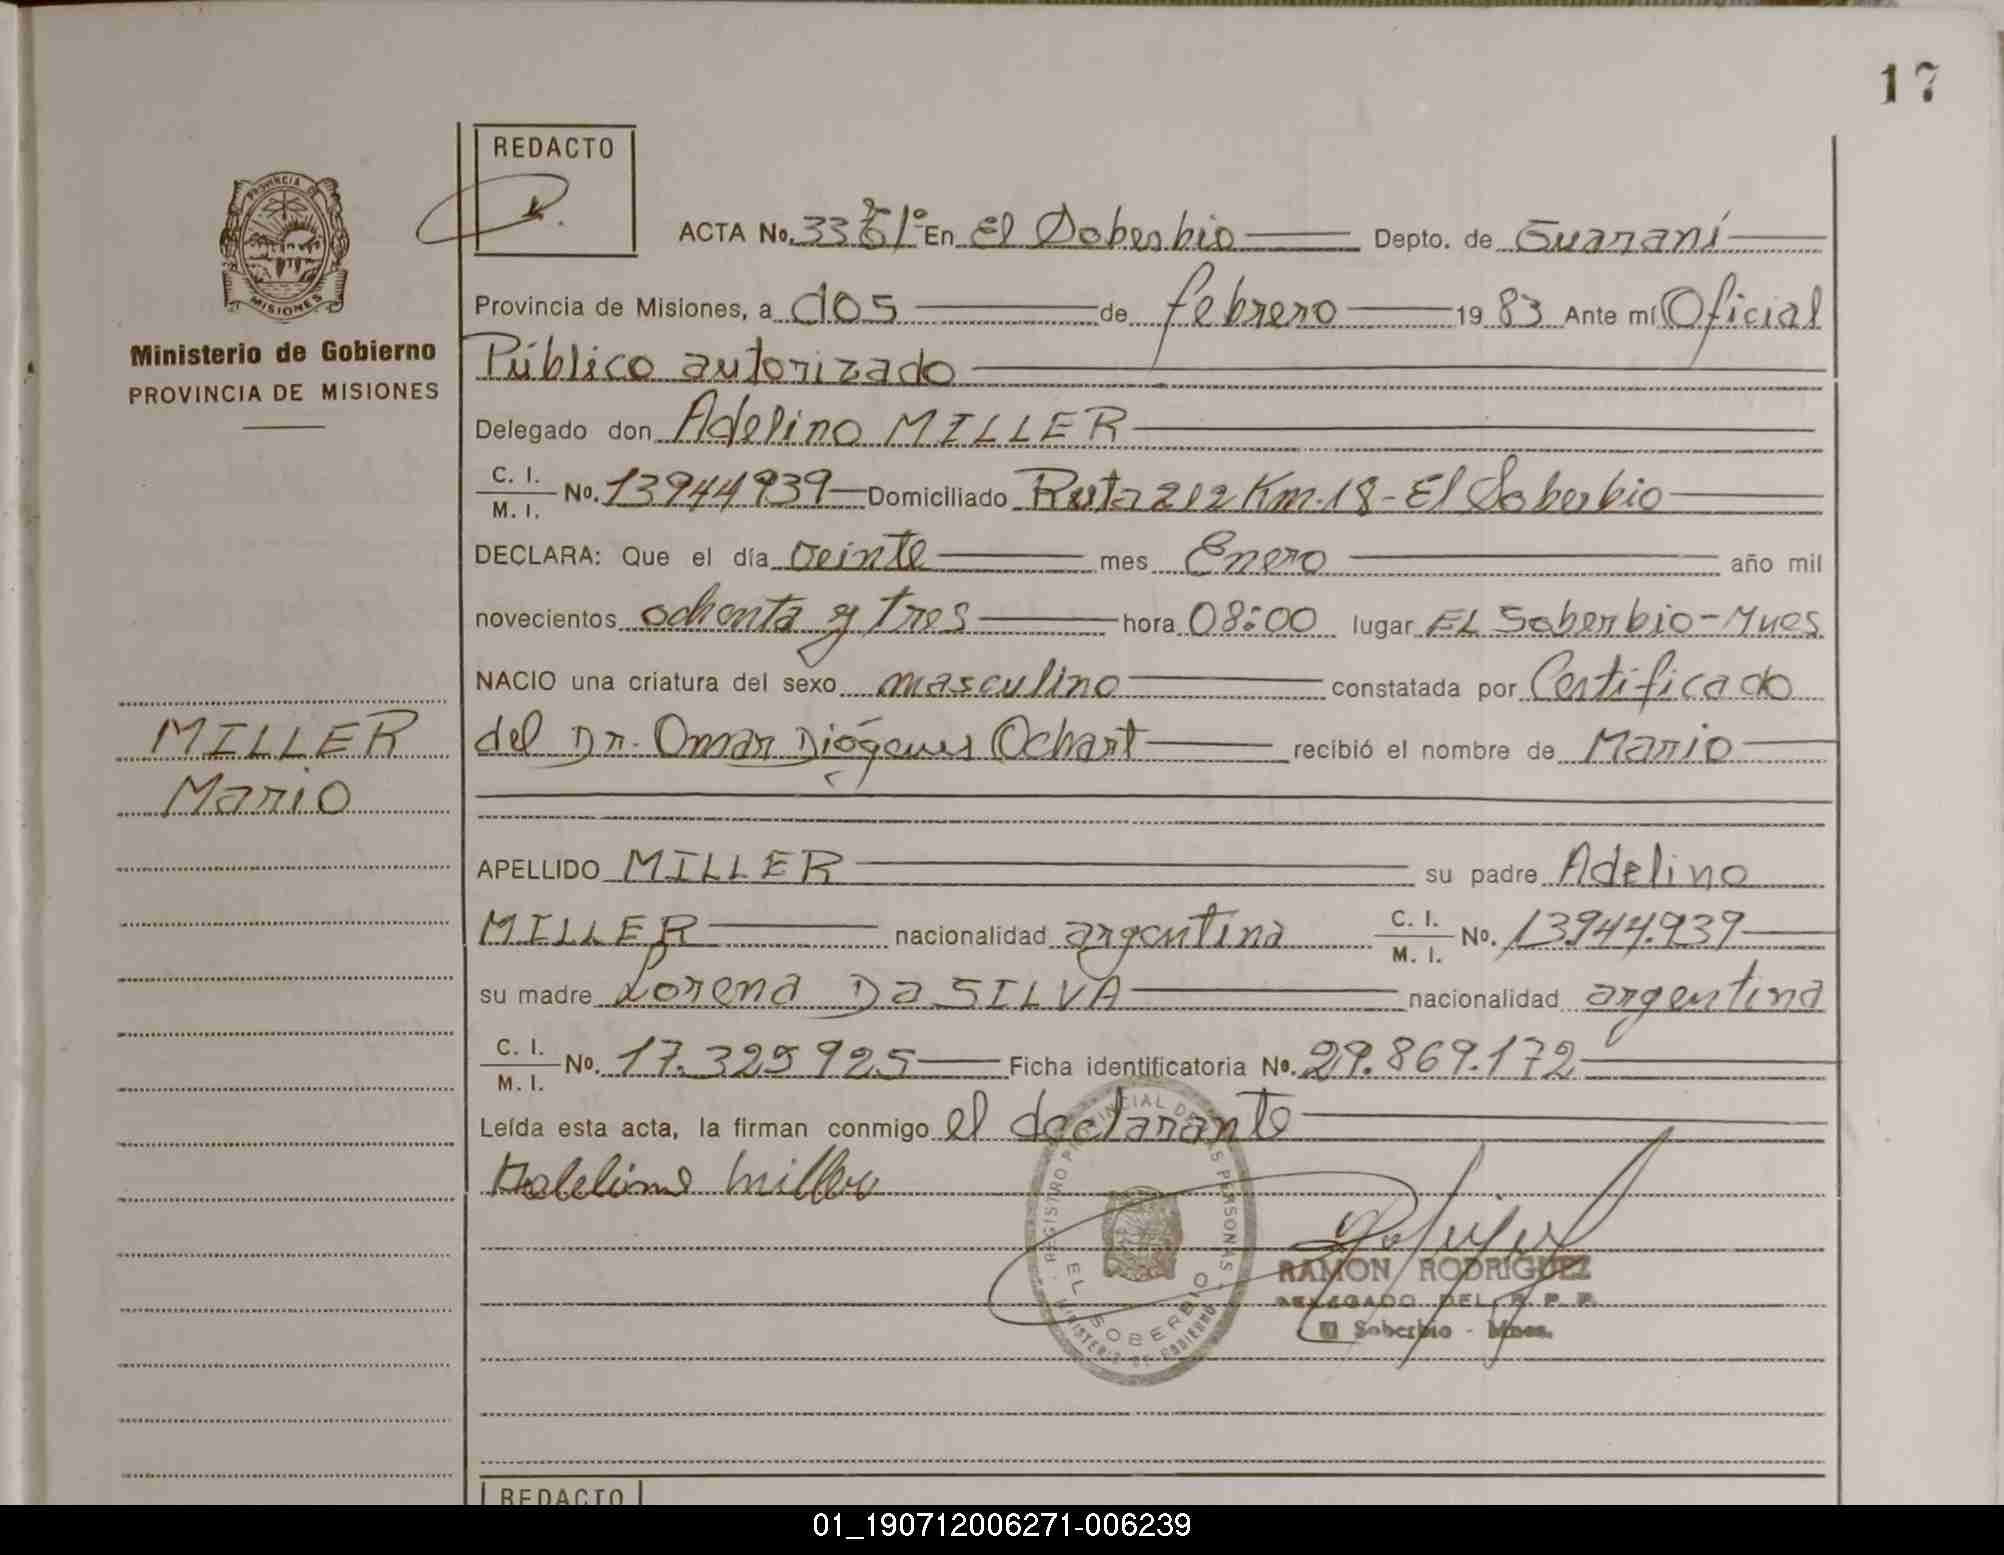 17
REDACTO
PROVINCIA DE
MISIONES
Ministerio de Gobierno
PROVINCIA DE MISIONES
MILLER
Mario
ACTA No. En El Soberbio Depto. de Guaraní
Provincia de Misiones, a dos de febrero 19 83 Ante mí Oficial
Público autorizado
Delegado don Adelino MILLER
C. I.
M. I. No. 13944939 Domiciliado Ruta 212 Km. 18 - El Soberbio
DECLARA: Que el día veinte mes Enero año mil
novecientos ochenta y tres hora 08:00 lugar EL Soberbio - Mnes
NACIO una criatura del sexo masculino constatada por Certificado
del Dr. Omar Diógenes Ochart recibió el nombre de Mario
APELLIDO MILLER su padre Adelino
MILLER nacionalidad argentina C. I. M. I. No. 13.944.939
su madre Lorena Da SILVA nacionalidad argentina
C. I.
M. I. No. 17.325925 Ficha identificatoria No. 29.869.172
Leída esta acta, la firman conmigo el declarante
Adelino Miller
REGISTRO PROVINCIAL DE LAS PERSONAS
EL SOBERBIO
MINISTERIO DE GOBIERNO
RAMON RODRIGUEZ
DELEGADO DEL R. P. P.
El Soberbio - Mnes.
REDACTO
01_190712006271-006239